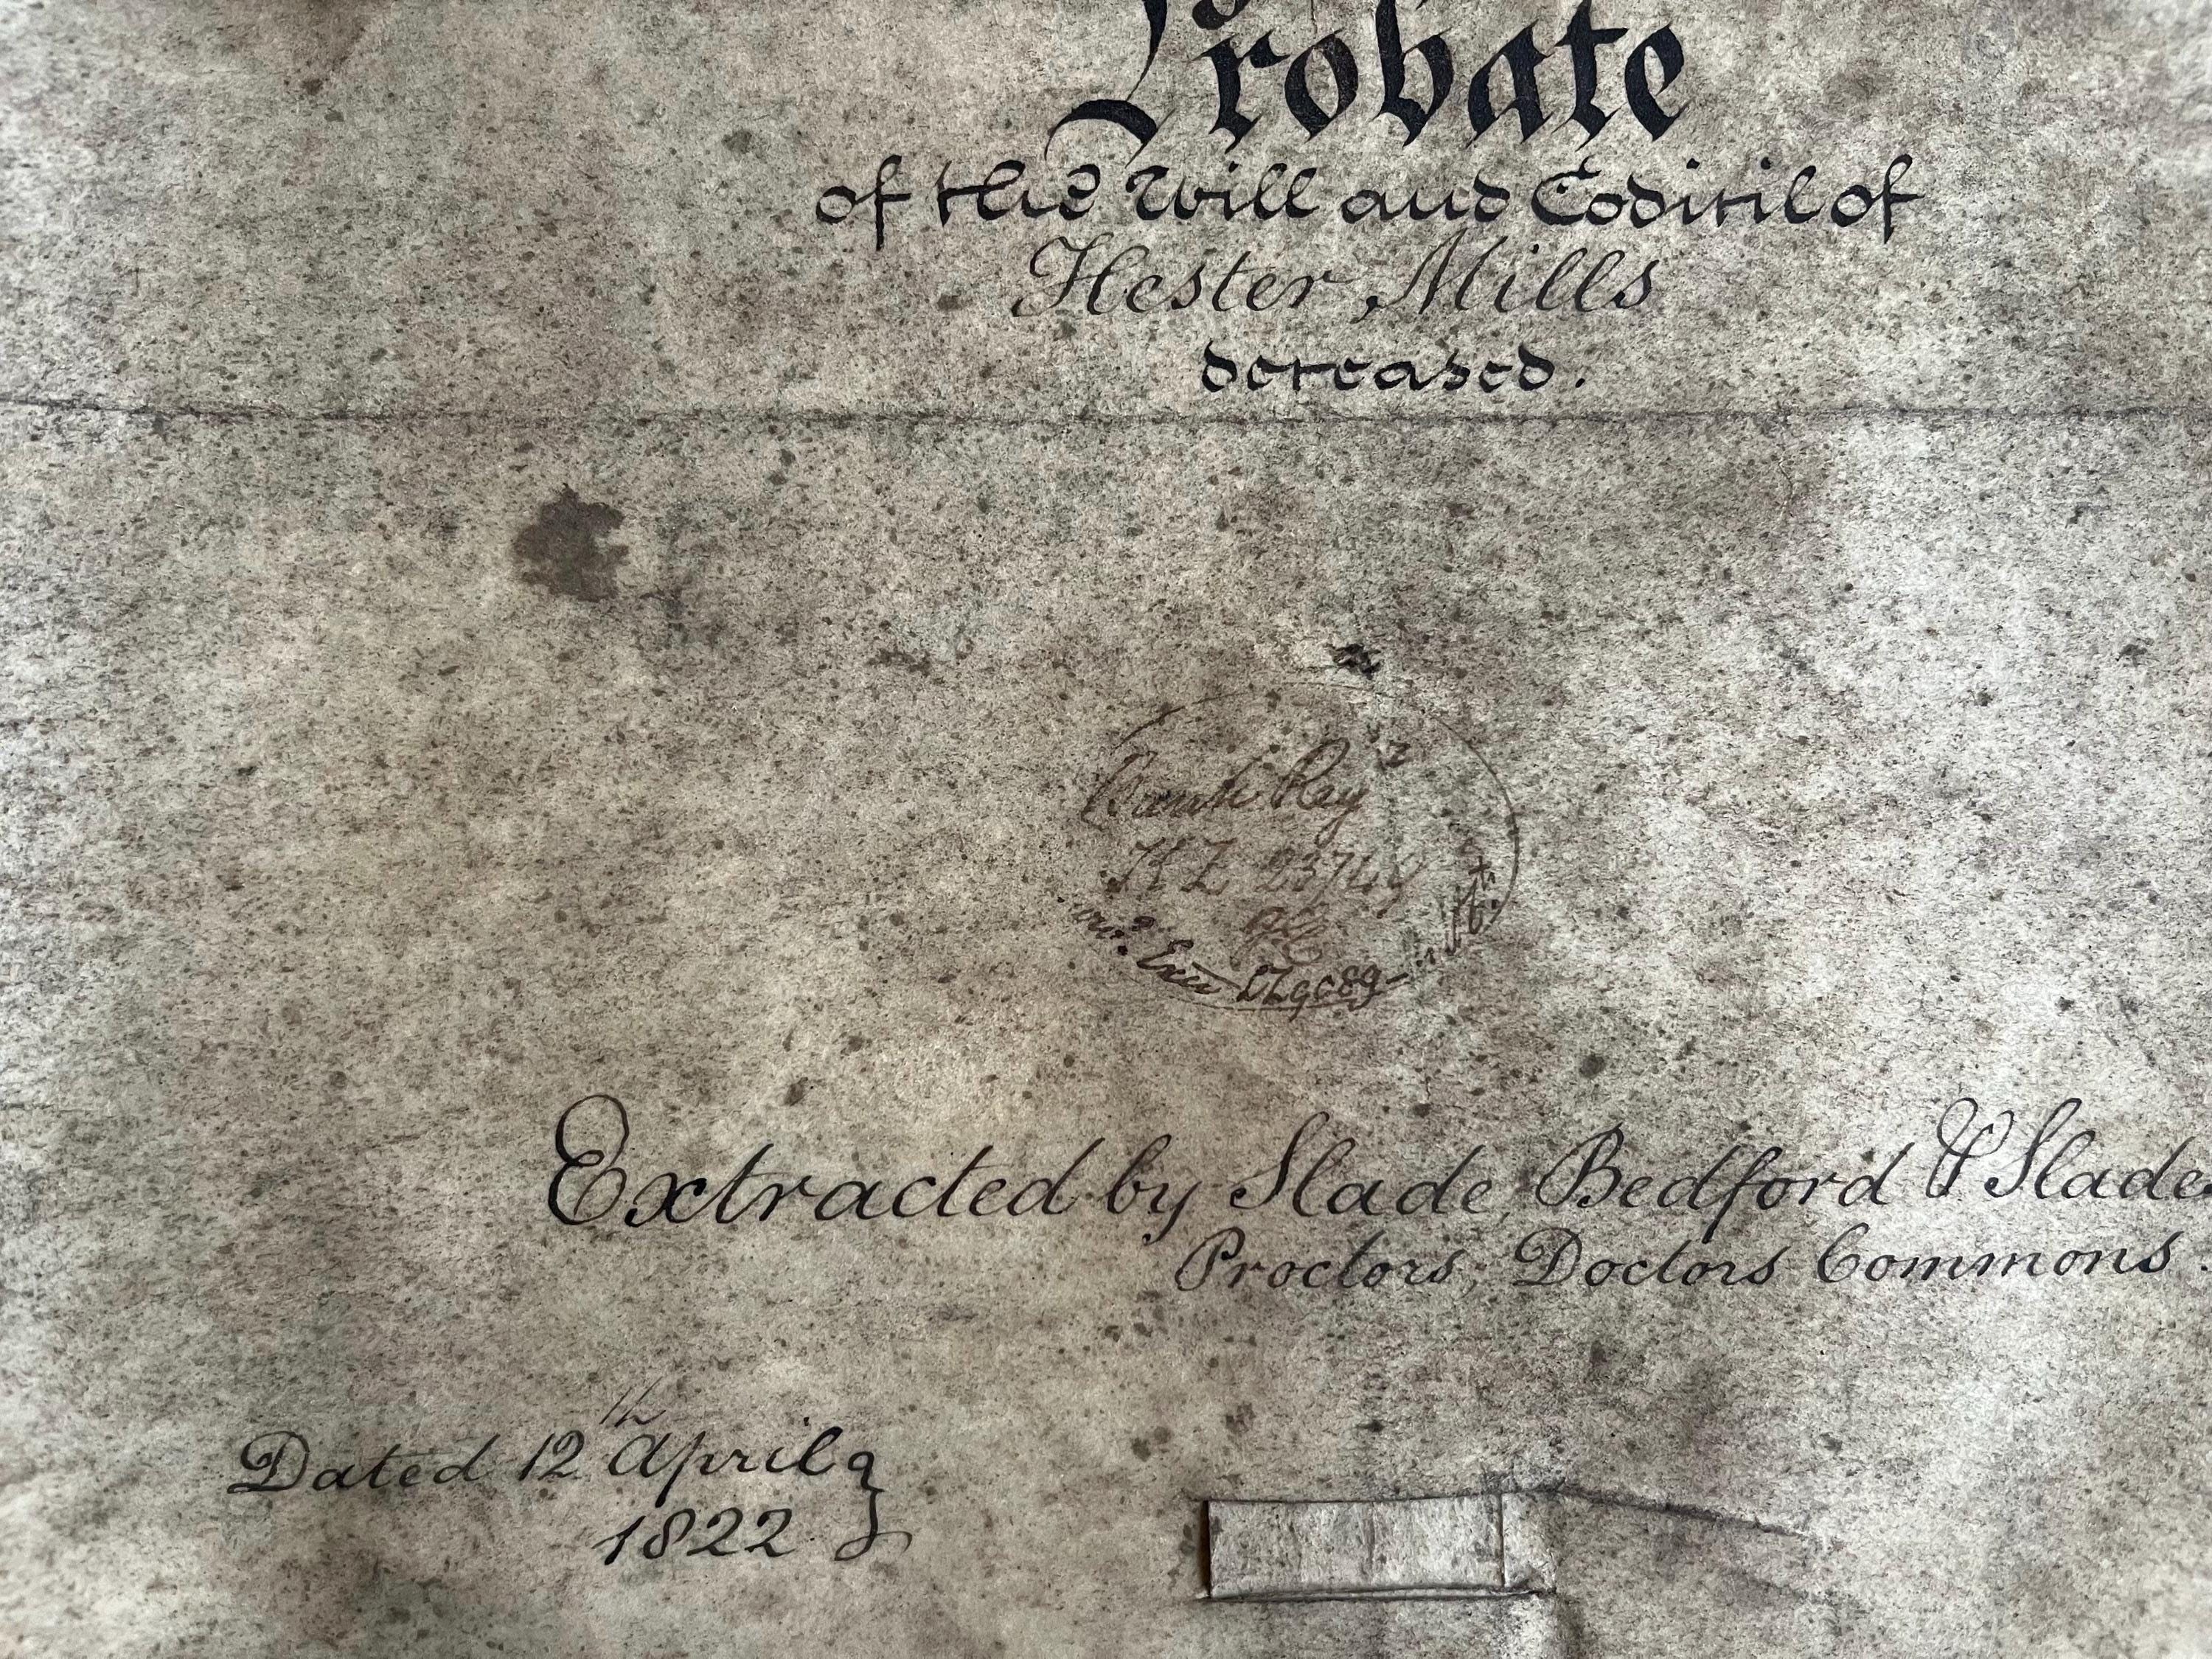 Probate
of the Will and Codicil of
Hester Mills
deceased.
Extracted by Slade, Bedford & Slade
Proctors, Doctors Commons.
Dated 12th April
1822